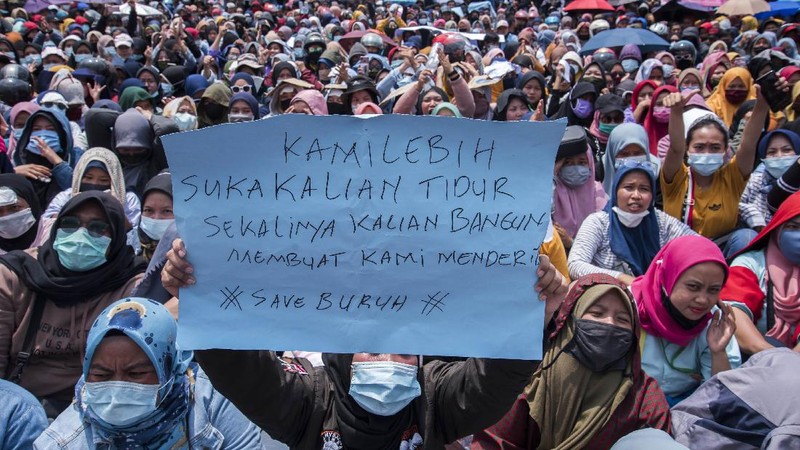 KAMI LEBIH
SUKA KALIAN TIDUR
SEKALINYA KALIAN BANGUN
MEMBUAT KAMI MENDERIT
# SAVE BURUH #
NEW YORK
U.S.A.